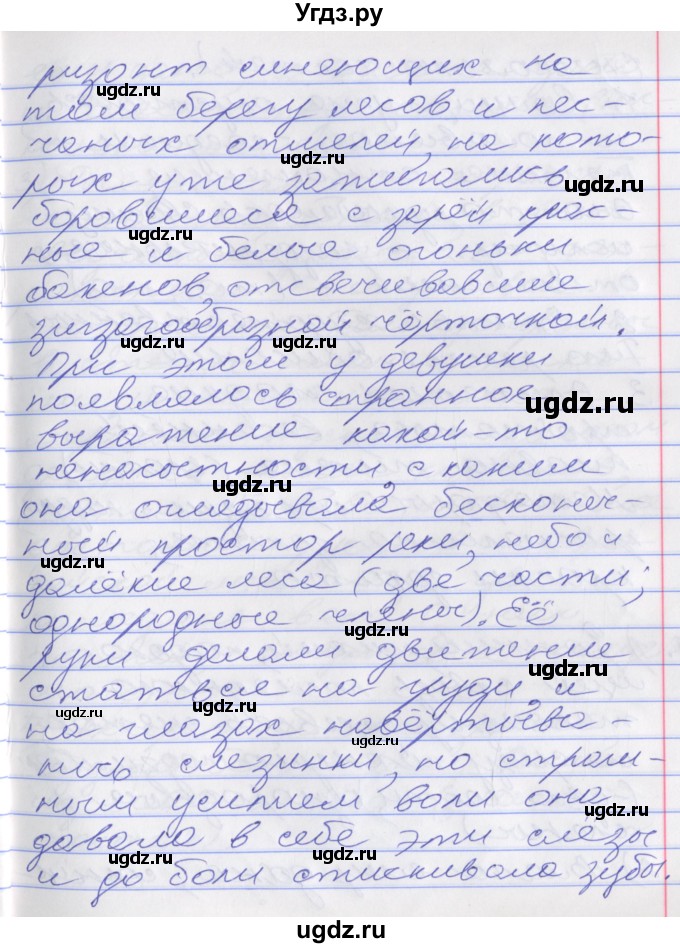 Угдз.ру
ризонт синеющих на
том берегу лесов и пес-
чаных отмелей, на кото-
рых уже зажигались
боровшиеся с зарёй крас-
ные и белые огоньки
бакенов, отсвечивавшие
зигзагообразной чёрточкой.
При этом у девушки
появлялось странное
выражение какой-то
ненасытности, с каким
она оглядывала бесконеч-
ный простор реки, небо и
далёкие леса (две части;
однородные члены). Её
руки делали движение
сжаться на груди, и
на глазах навёртыва-
лись слезинки, но страш-
ным усилием воли она
давала в себе эти слёзы
и до боли стискивала зубы.
ugdz.ru
ugdz.ru
ugdz.ru
ugdz.ru
ugdz.ru
ugdz.ru
ugdz.ru
ugdz.ru
ugdz.ru
ugdz.ru
ugdz.ru
ugdz.ru
ugdz.ru
ugdz.ru
ugdz.ru
ugdz.ru
ugdz.ru
ugdz.ru
ugdz.ru